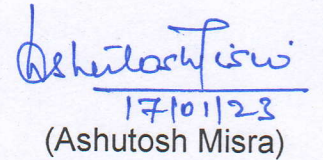 Ashutosh Misra
17/01/23
(Ashutosh Misra)